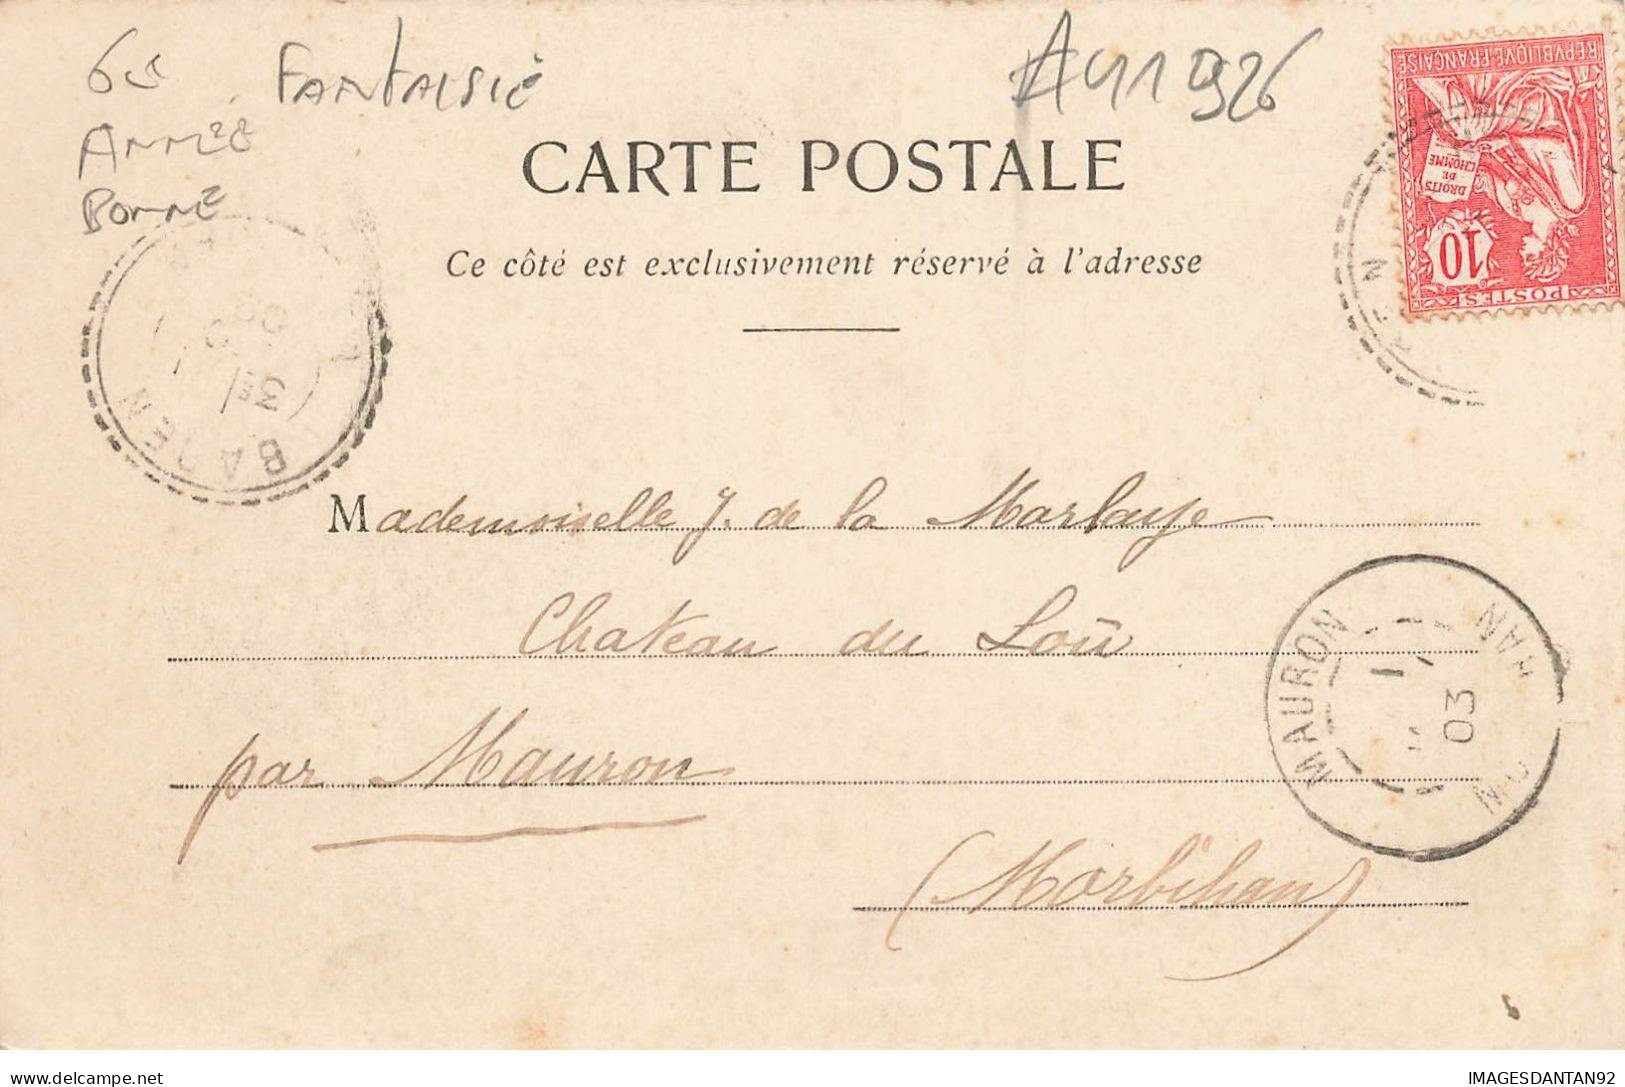 FANTAISIE
A41 926
ANNEE
BONNE
CARTE POSTALE
Ce côté est exclusivement réservé à l'adresse
REPUBLIQUE FRANÇAISE
DROITS
DE
L'HOMME
10
POSTES
BADEN
31
Mademoiselle J. de la Morlaye
Chateau du Loû
par Mauron
(Morbihan)
MAURON
1
03
IMAGESDANTAN92